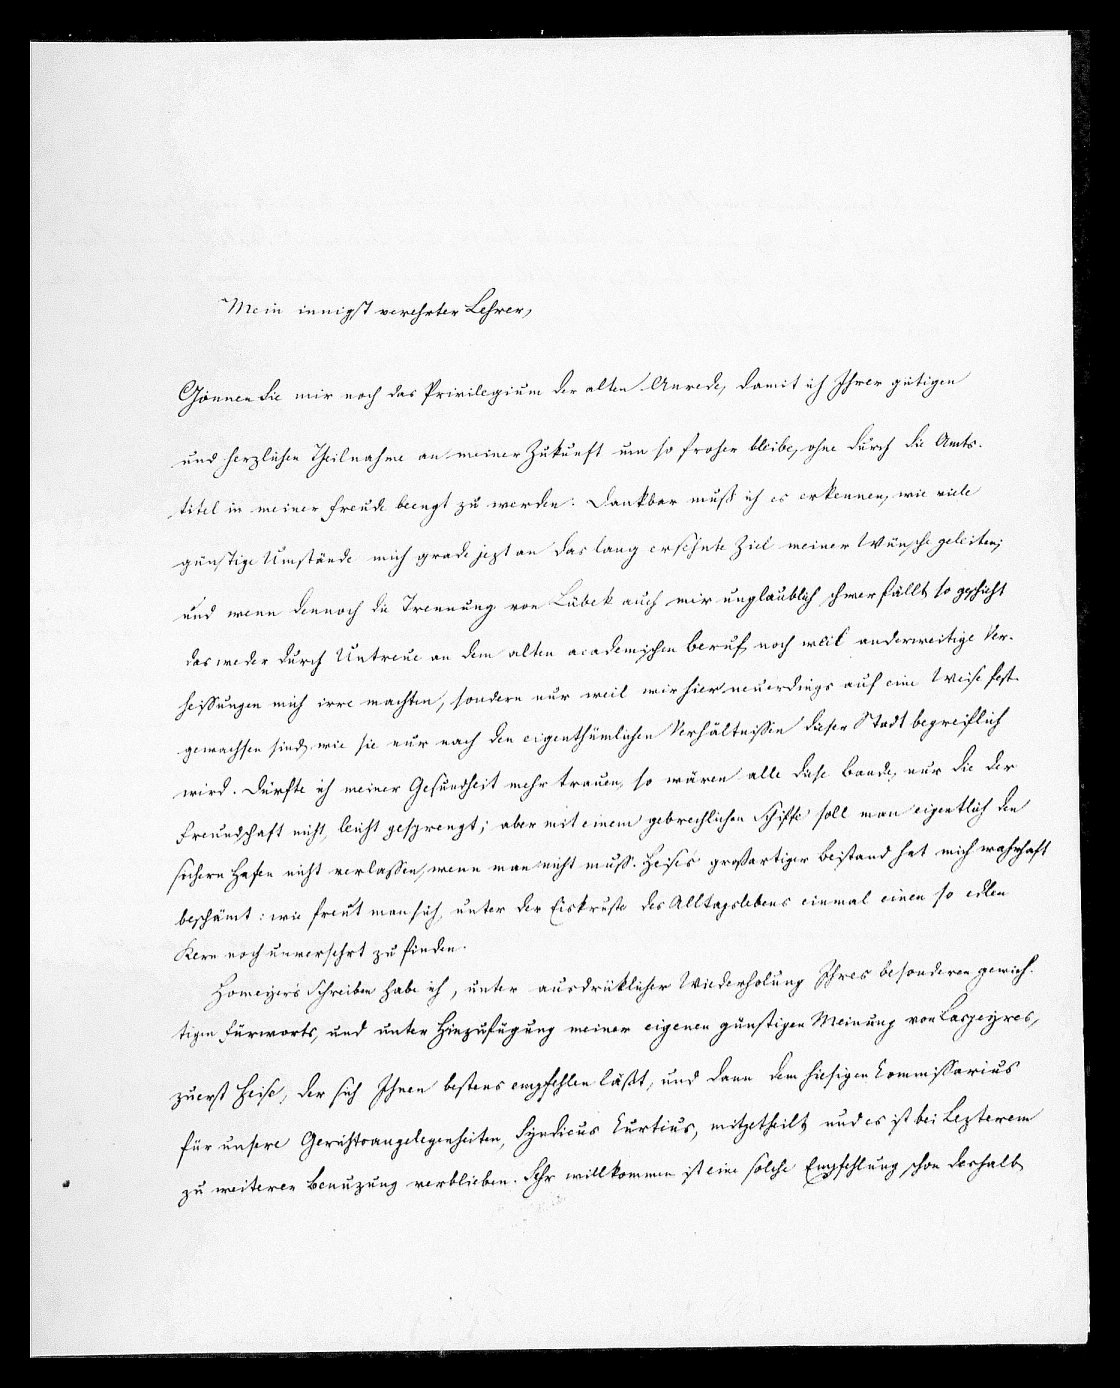 Mein innigst verehrter Lehrer,
Gönnen Sie mir noch das Privilegium der alten Anrede, damit ich Ihrer gütigen
und herzlichen Theilnahme an meiner Zukunft um so froher bleibe, ohne durch die Amts-
titel in meiner Freude beengt zu werden. Dankbar muß ich es erkennen, wie viele
günstige Umstände mich grade jezt an das lang ersehnte Ziel meiner Wünsche geleiten;
und wenn dennoch die Trennung von Lübek auch mir unglaublich schwer fällt, so geschieht
das weder durch Untreue an dem alten academischen Beruf, noch weil anderweitige Ver-
heissungen mich irre machten, sondern nur weil wir hier neuerdings auf eine Weise fest-
gewachsen sind, wie sie nur nach den eigenthümlichen Verhältnissen dieser Stadt begreiflich
wird. Dürfte ich meiner Gesundheit mehr trauen, so wären alle diese Bande, nur die der
Freundschaft nicht, leicht gesprengt; aber mit einem gebrechlichen Schiffe soll man eigentlich den
sichern Hafen nicht verlassen, wenn man nicht muss. Heise's großartiger Beistand hat mich wahrhaft
beschämt: wie freut man sich, unter der Eiskruste des Alltagslebens einmal einen so edlen
Kern noch unversehrt zu finden.
Homeyer's Schreiben habe ich, unter ausdrüklicher Wiederholung Ihres besonderen gewich-
tigen Fürworts, und unter Hinzufügung meiner eigenen günstigen Meinung von Laspeyres,
zuerst Heise, der sich Ihnen bestens empfehlen läßt, und dann dem hiesigen Commissarius
für unsere Gerichtsangelegenheiten, Syndicus Curtius, mitgetheilt, und es ist bei Lezterem
zu weiterer Benuzung verblieben. Sehr willkommen ist eine solche Empfehlung schon deshalb,